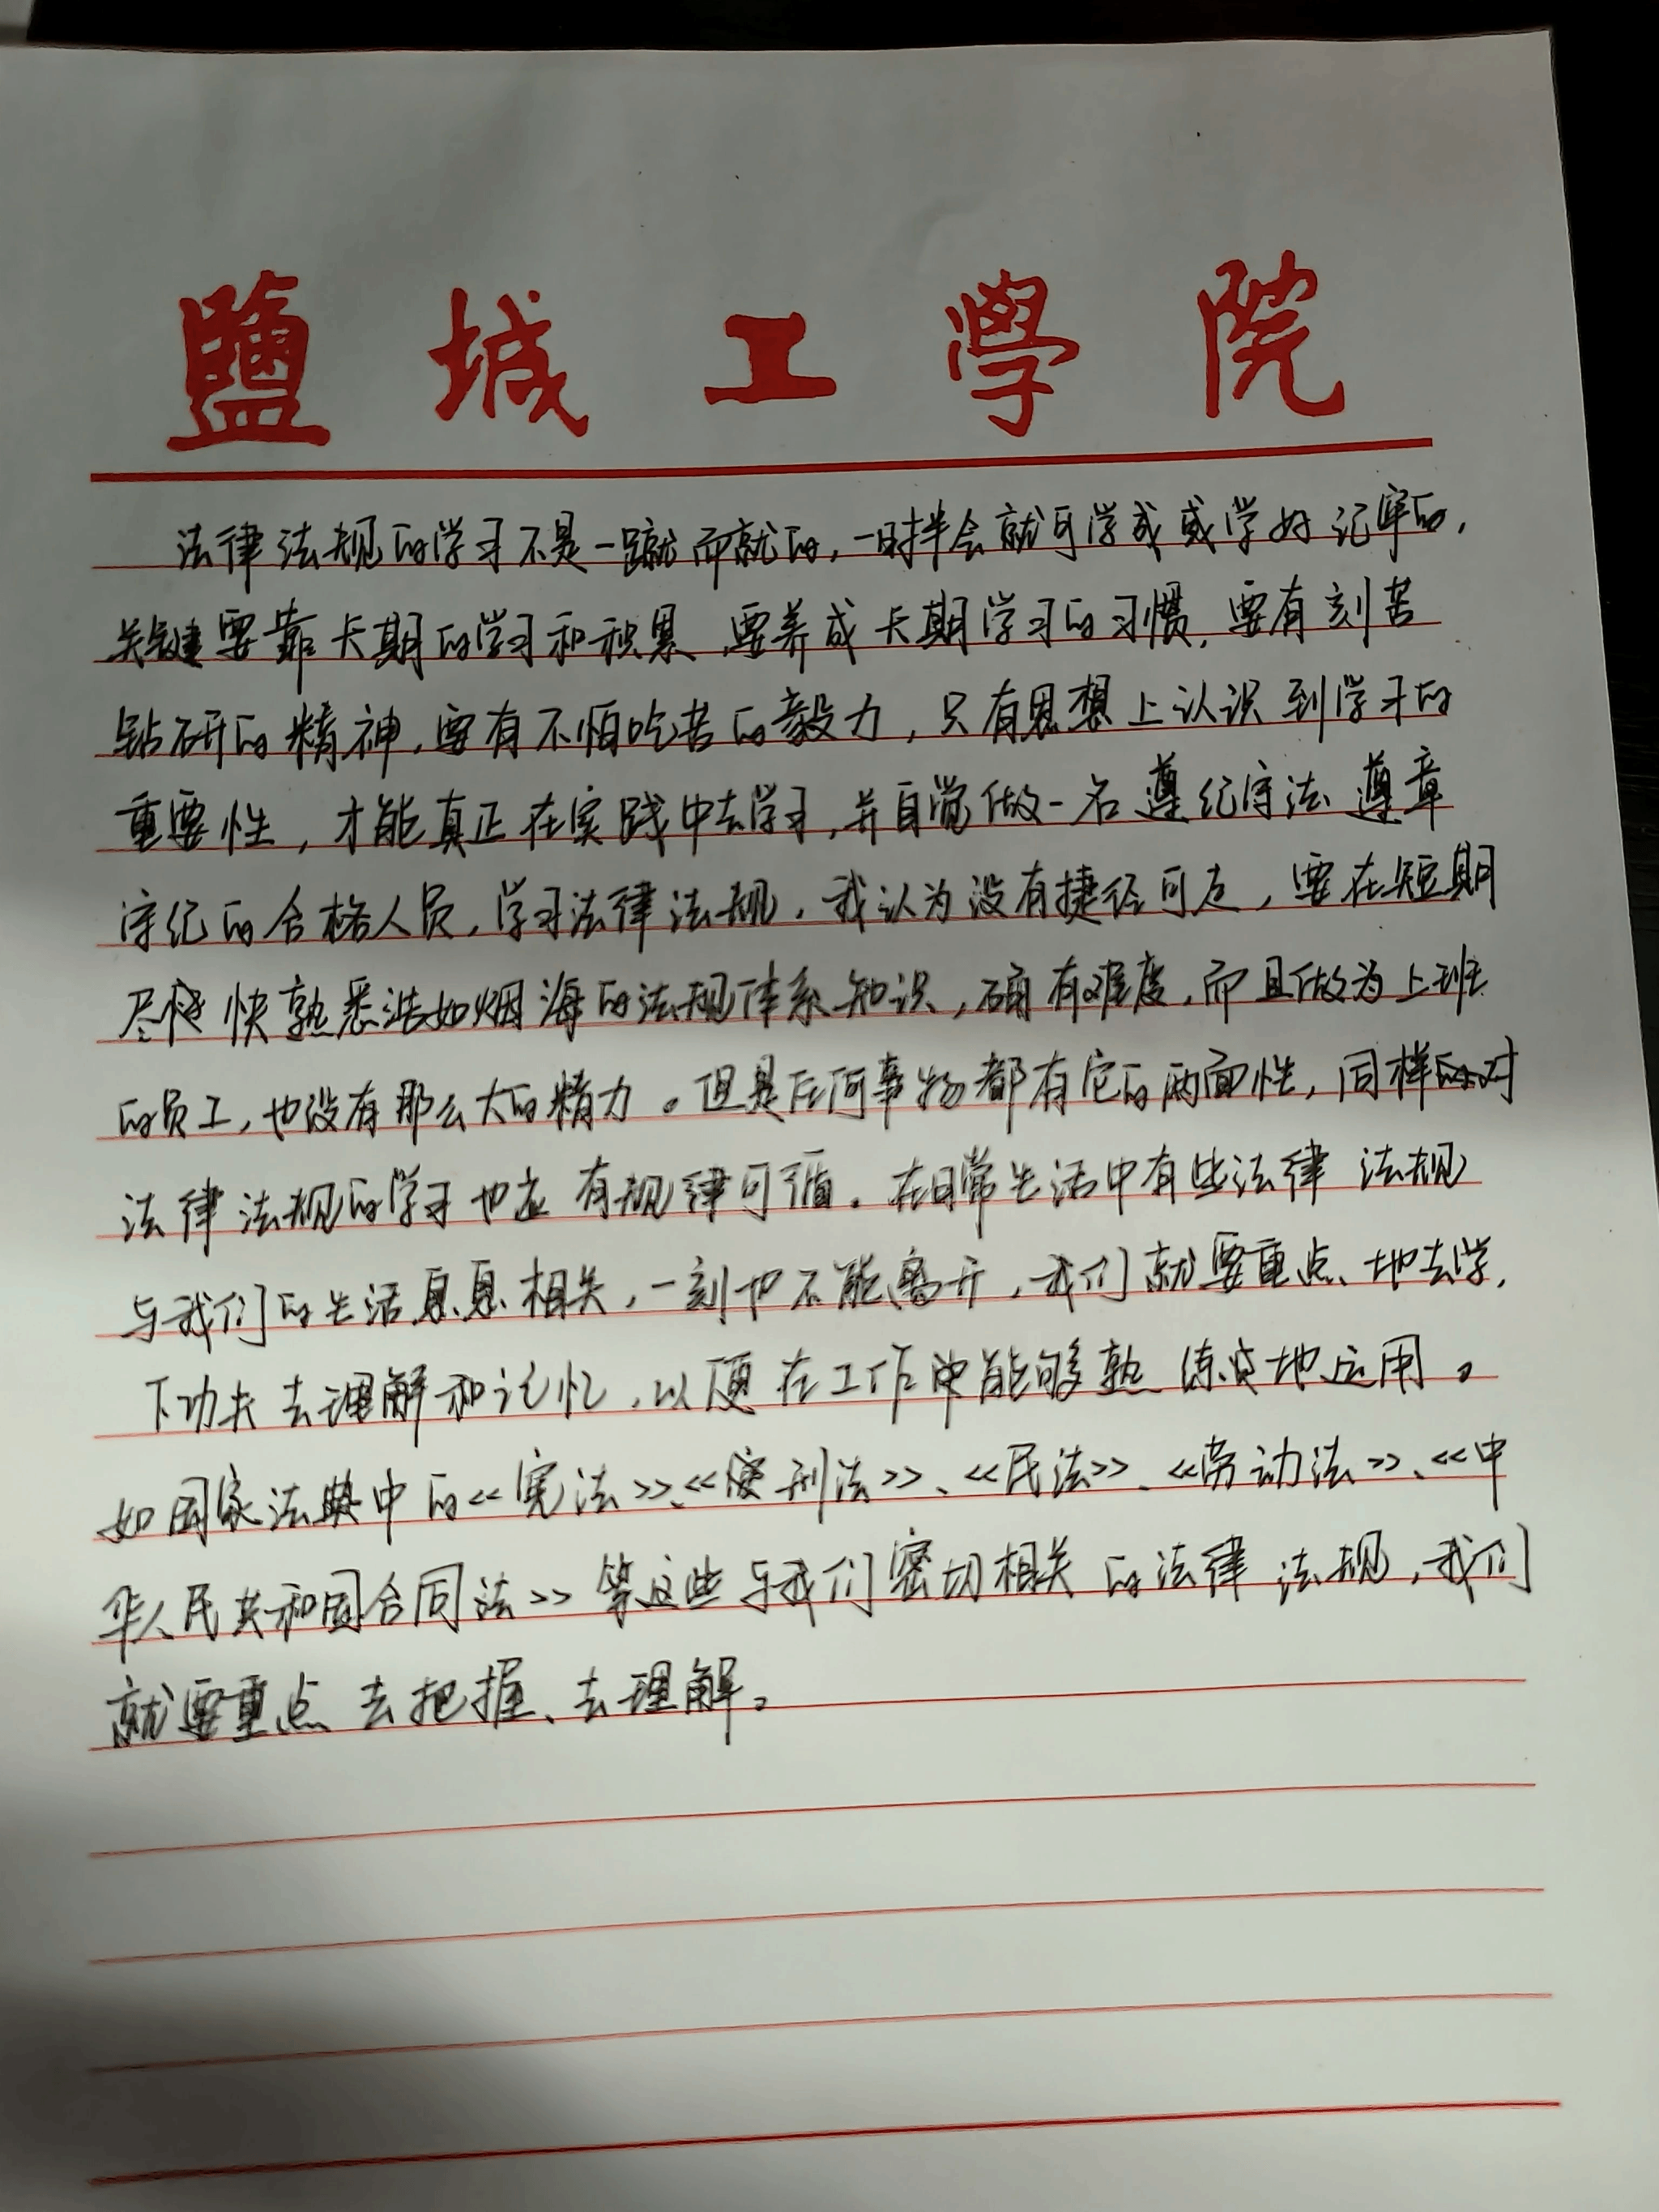 鹽城工學院
法律法规的学习不是一蹴而就的，一时半会就可学成或学好记牢的，
关键要靠长期的学习和积累，要养成长期学习的习惯，要有刻苦
钻研的精神，要有不怕吃苦的毅力，只有思想上认识到学习的
重要性，才能真正在实践中去学习，并自觉做一名遵纪守法 遵章
守纪的合格人员，学习法律法规，我认为没有捷径可走，要在短期
尽快熟悉浩如烟海的法规体系知识，确有难度，而且做为上班
的员工，也没有那么大的精力。但是任何事物都有它的两面性，同样对
法律法规的学习也应有规律可循。在日常生活中有些法律法规
与我们的生活息息相关，一刻也不能离开，我们就要重点地去学，
下功夫去理解和记忆，以便在工作中能够熟练地运用。
如国家法典中的《宪法》、《刑法》、《民法》、《劳动法》、《中
华人民共和国合同法》等这些与我们密切相关的法律法规，我们
就要重点去把握、去理解。